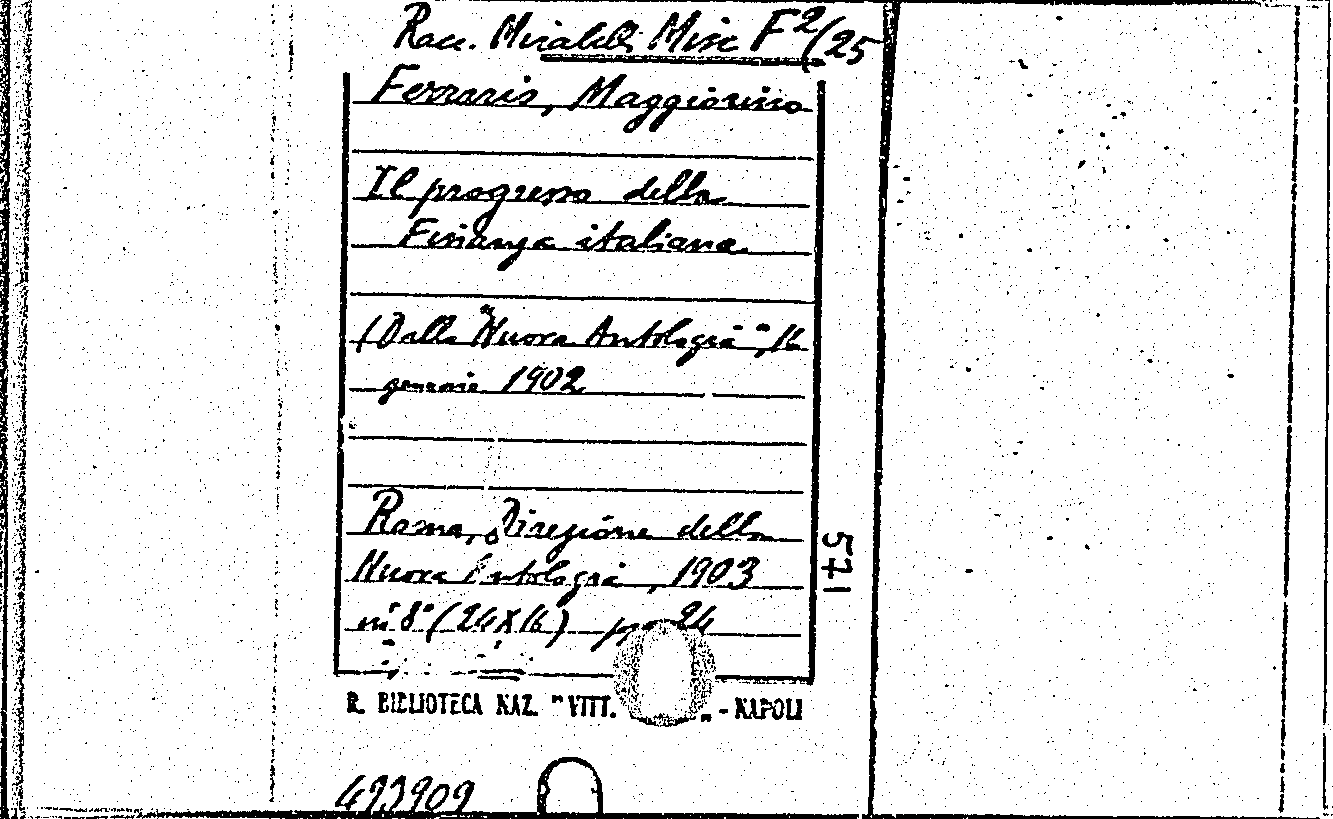 Racc. Mirabelli Misc F²(25
Ferraris, Maggiorino
Il progresso della
Finanza italiana
(Dalla "Nuova Antologia", 16
gennaio 1902
Roma, Direzione della
Nuova Antologia, 1903
in 8° (24X16) pp 24
571
R. BIBLIOTECA NAZ. "VITT. „ - NAPOLI
493909